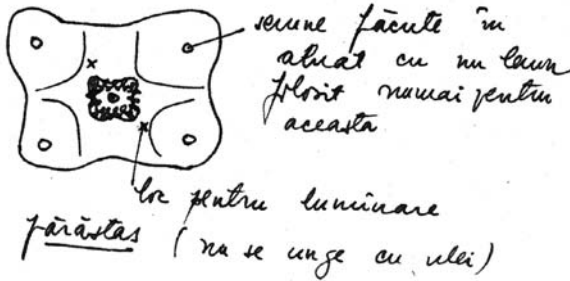 semne făcute în
aluat cu un lemn
folosit numai pentru
aceasta
loc pentru lumînare
părăstas (nu se unge cu ulei)